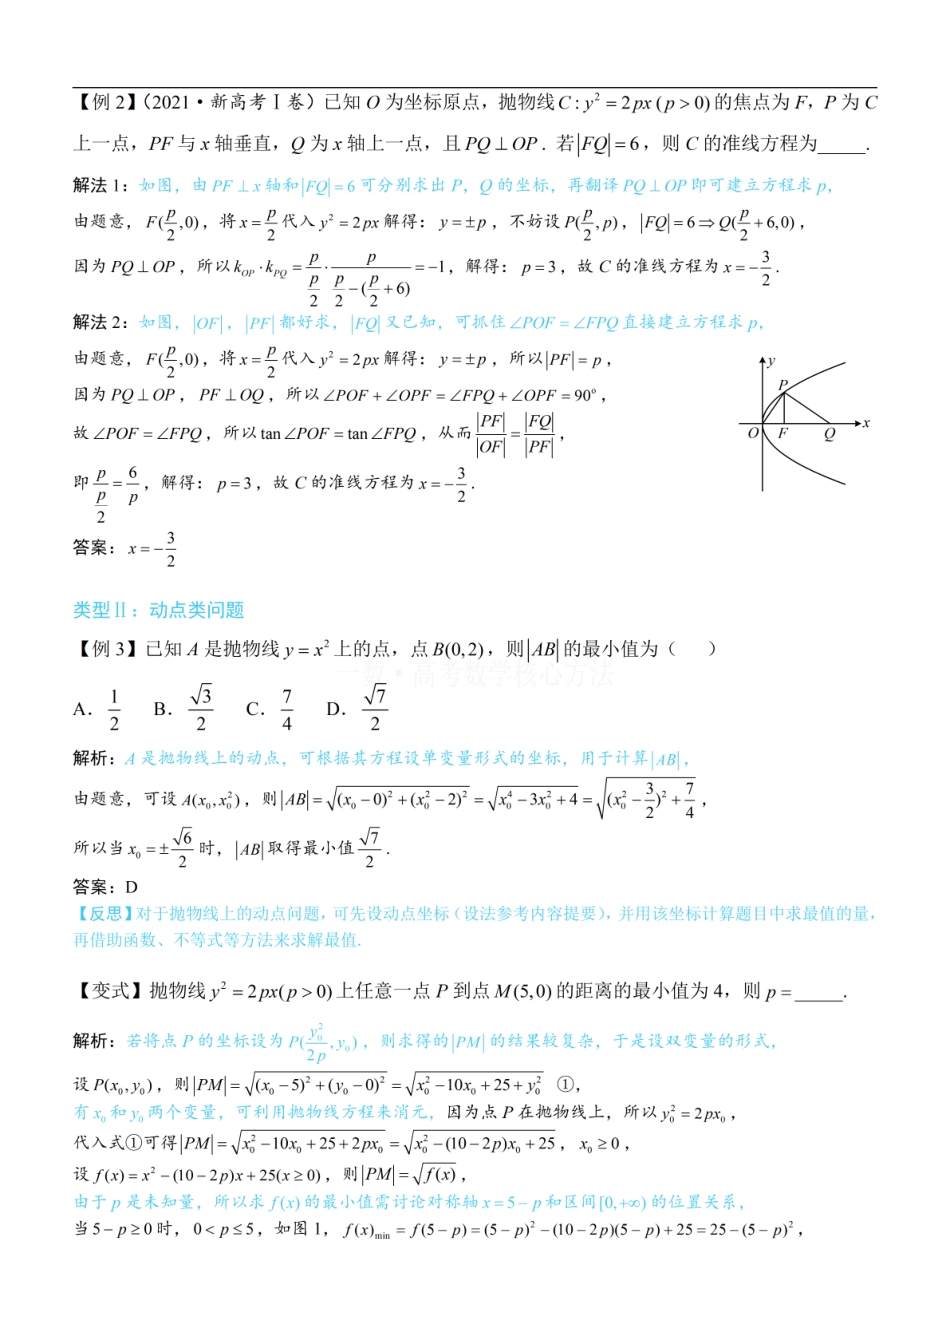 【例 2】（2021·新高考Ⅰ卷）已知 O 为坐标原点，抛物线 C : y² = 2px (p > 0) 的焦点为 F，P 为 C
上一点，PF 与 x 轴垂直，Q 为 x 轴上一点，且 PQ ⊥ OP . 若 |FQ| = 6，则 C 的准线方程为_____.
解法 1：如图，由 PF ⊥ x 轴和 |FQ| = 6 可分别求出 P，Q 的坐标，再翻译 PQ ⊥ OP 即可建立方程求 p，
由题意，F(p/2, 0)，将 x = p/2 代入 y² = 2px 解得：y = ±p，不妨设 P(p/2, p)，|FQ| = 6 ⇒ Q(p/2 + 6, 0)，
因为 PQ ⊥ OP，所以 k_OP · k_PQ = p/(p/2) · p/(p/2 − (p/2 + 6)) = −1，解得：p = 3，故 C 的准线方程为 x = −3/2 .
解法 2：如图，|OF|，|PF| 都好求，|FQ| 又已知，可抓住 ∠POF = ∠FPQ 直接建立方程求 p，
由题意，F(p/2, 0)，将 x = p/2 代入 y² = 2px 解得：y = ±p，所以 |PF| = p，
因为 PQ ⊥ OP，PF ⊥ OQ，所以 ∠POF + ∠OPF = ∠FPQ + ∠OPF = 90°，
故 ∠POF = ∠FPQ，所以 tan∠POF = tan∠FPQ，从而 |PF|/|OF| = |FQ|/|PF|，
即 p/(p/2) = 6/p，解得：p = 3，故 C 的准线方程为 x = −3/2 .
y
P
O F Q x
答案：x = −3/2
类型Ⅱ：动点类问题
【例 3】已知 A 是抛物线 y = x² 上的点，点 B(0, 2)，则 |AB| 的最小值为（ ）
一数·高考数学核心方法
A．1/2 B．√3/2 C．7/4 D．√7/2
解析：A 是抛物线上的动点，可根据其方程设单变量形式的坐标，用于计算 |AB|，
由题意，可设 A(x₀, x₀²)，则 |AB| = √((x₀ − 0)² + (x₀² − 2)²) = √(x₀⁴ − 3x₀² + 4) = √((x₀² − 3/2)² + 7/4)，
所以当 x₀ = ±√6/2 时，|AB| 取得最小值 √7/2 .
答案：D
【反思】对于抛物线上的动点问题，可先设动点坐标（设法参考内容提要），并用该坐标计算题目中求最值的量，
再借助函数、不等式等方法来求解最值.
【变式】抛物线 y² = 2px(p > 0) 上任意一点 P 到点 M(5, 0) 的距离的最小值为 4，则 p = _____.
解析：若将点 P 的坐标设为 P(y₀²/2p, y₀)，则求得的 |PM| 的结果较复杂，于是设双变量的形式，
设 P(x₀, y₀)，则 |PM| = √((x₀ − 5)² + (y₀ − 0)²) = √(x₀² − 10x₀ + 25 + y₀²) ①，
有 x₀ 和 y₀ 两个变量，可利用抛物线方程来消元，因为点 P 在抛物线上，所以 y₀² = 2px₀，
代入式①可得 |PM| = √(x₀² − 10x₀ + 25 + 2px₀) = √(x₀² − (10 − 2p)x₀ + 25)，x₀ ≥ 0，
设 f(x) = x² − (10 − 2p)x + 25(x ≥ 0)，则 |PM| = √(f(x))，
由于 p 是未知量，所以求 f(x) 的最小值需讨论对称轴 x = 5 − p 和区间[0, +∞) 的位置关系，
当 5 − p ≥ 0 时，0 < p ≤ 5，如图 1，f(x)min = f(5 − p) = (5 − p)² − (10 − 2p)(5 − p) + 25 = 25 − (5 − p)²，